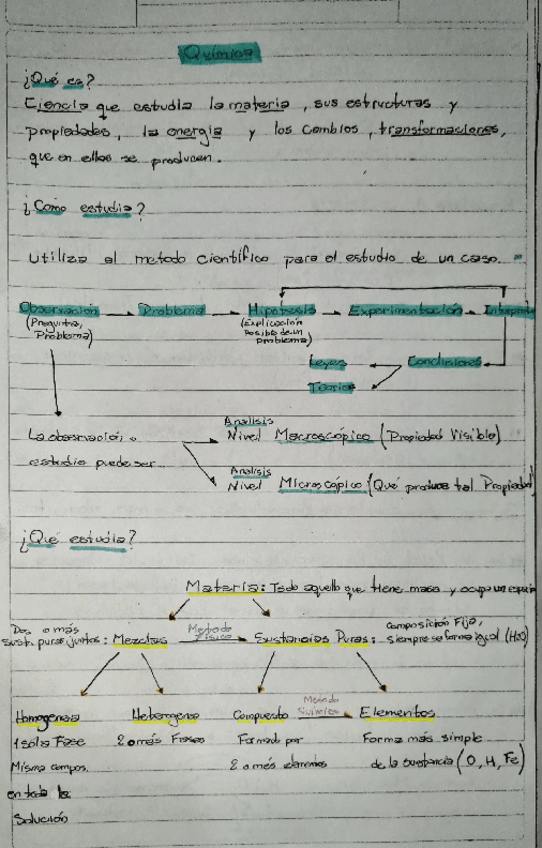 Química
¿Qué es?
Ciencia que estudia la materia, sus estructuras y
propiedades, la energía y los cambios, transformaciones,
que en ellos se producen.
¿Como estudia?
Utiliza el metodo científico para el estudio de un caso.
Observación Problema Hipotesis Experimentación
(Pregunta, Problema)
(Explicación Posible de un problema)
Leyes Conclusiones
Teorías
La observación, o
estudio puede ser
Analisis
Nivel Macroscópico (Propiedad Visible)
Analisis
Nivel Microscópico (Qué produce tal Propiedad)
¿Qué estudia?
Materia: Todo aquello que tiene masa y ocupa un
Dos o más
sust. puras juntas: Mezclas Metodo Físico Sustancias Puras: Composición Fija,
siempre se forma igual (H2O)
Homogenea Heterogeneo Compuesto Metodo Elementos
1 sola Fase 2 o más Fases Formado por Forma más simple
Misma compos. 2 o más elementos de la sustancia (O, H, Fe)
en toda la
Solución